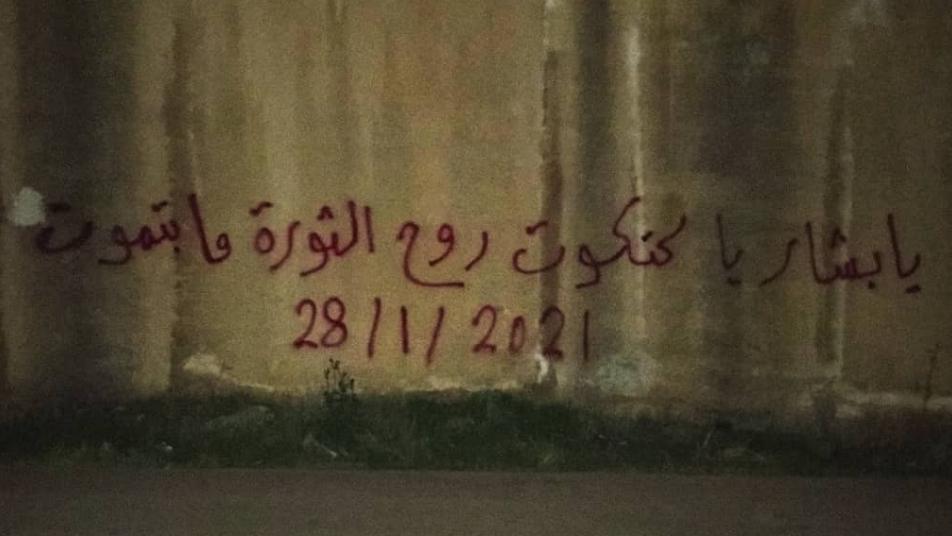 يا بشار يا كتكوت روح الثورة ما بتموت
28/1/2021